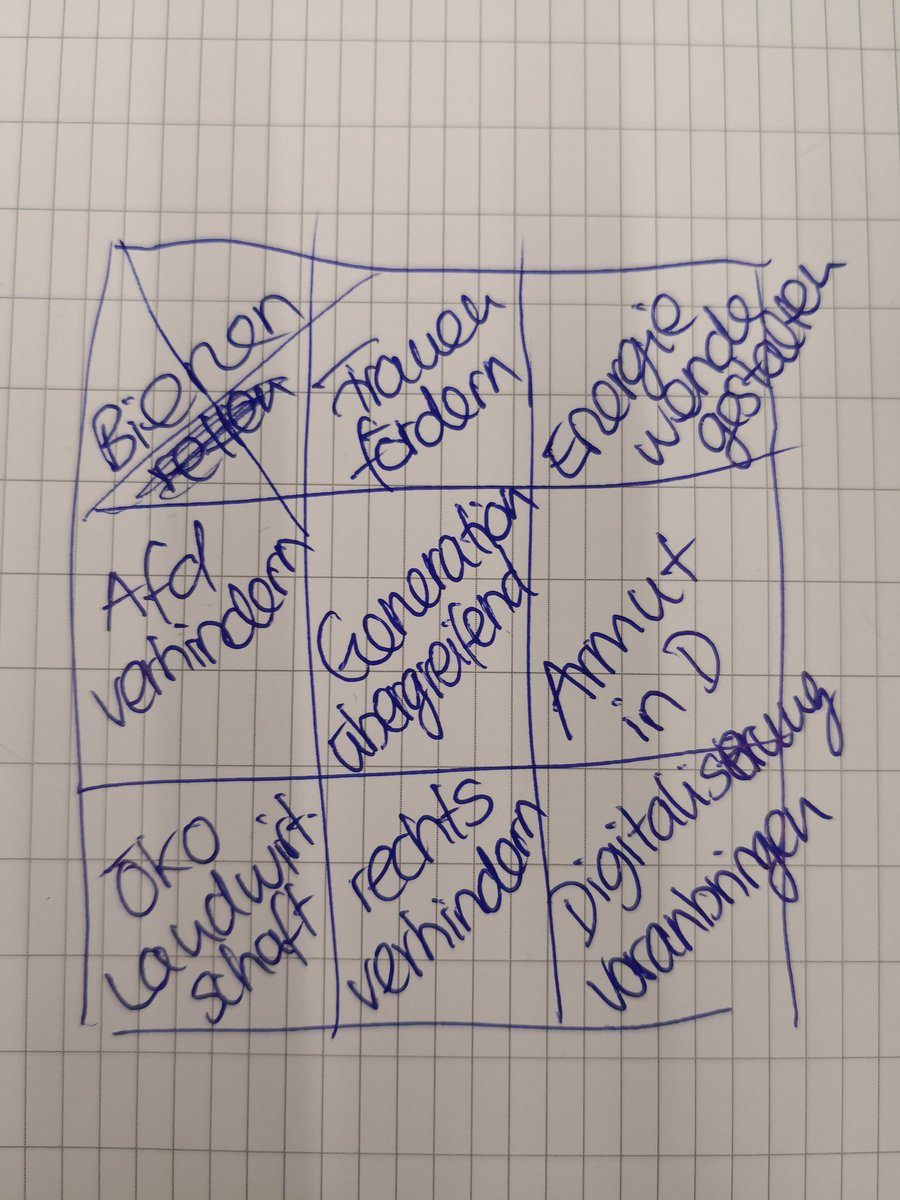 Bienen
retten
Frauen
fördern
Energie
wende
gestalten
Afd
verhindern
Generation
übergreifend
Armut
in D
Öko
Landwirt-
schaft
rechts
verhindern
Digitalisierung
voranbringen